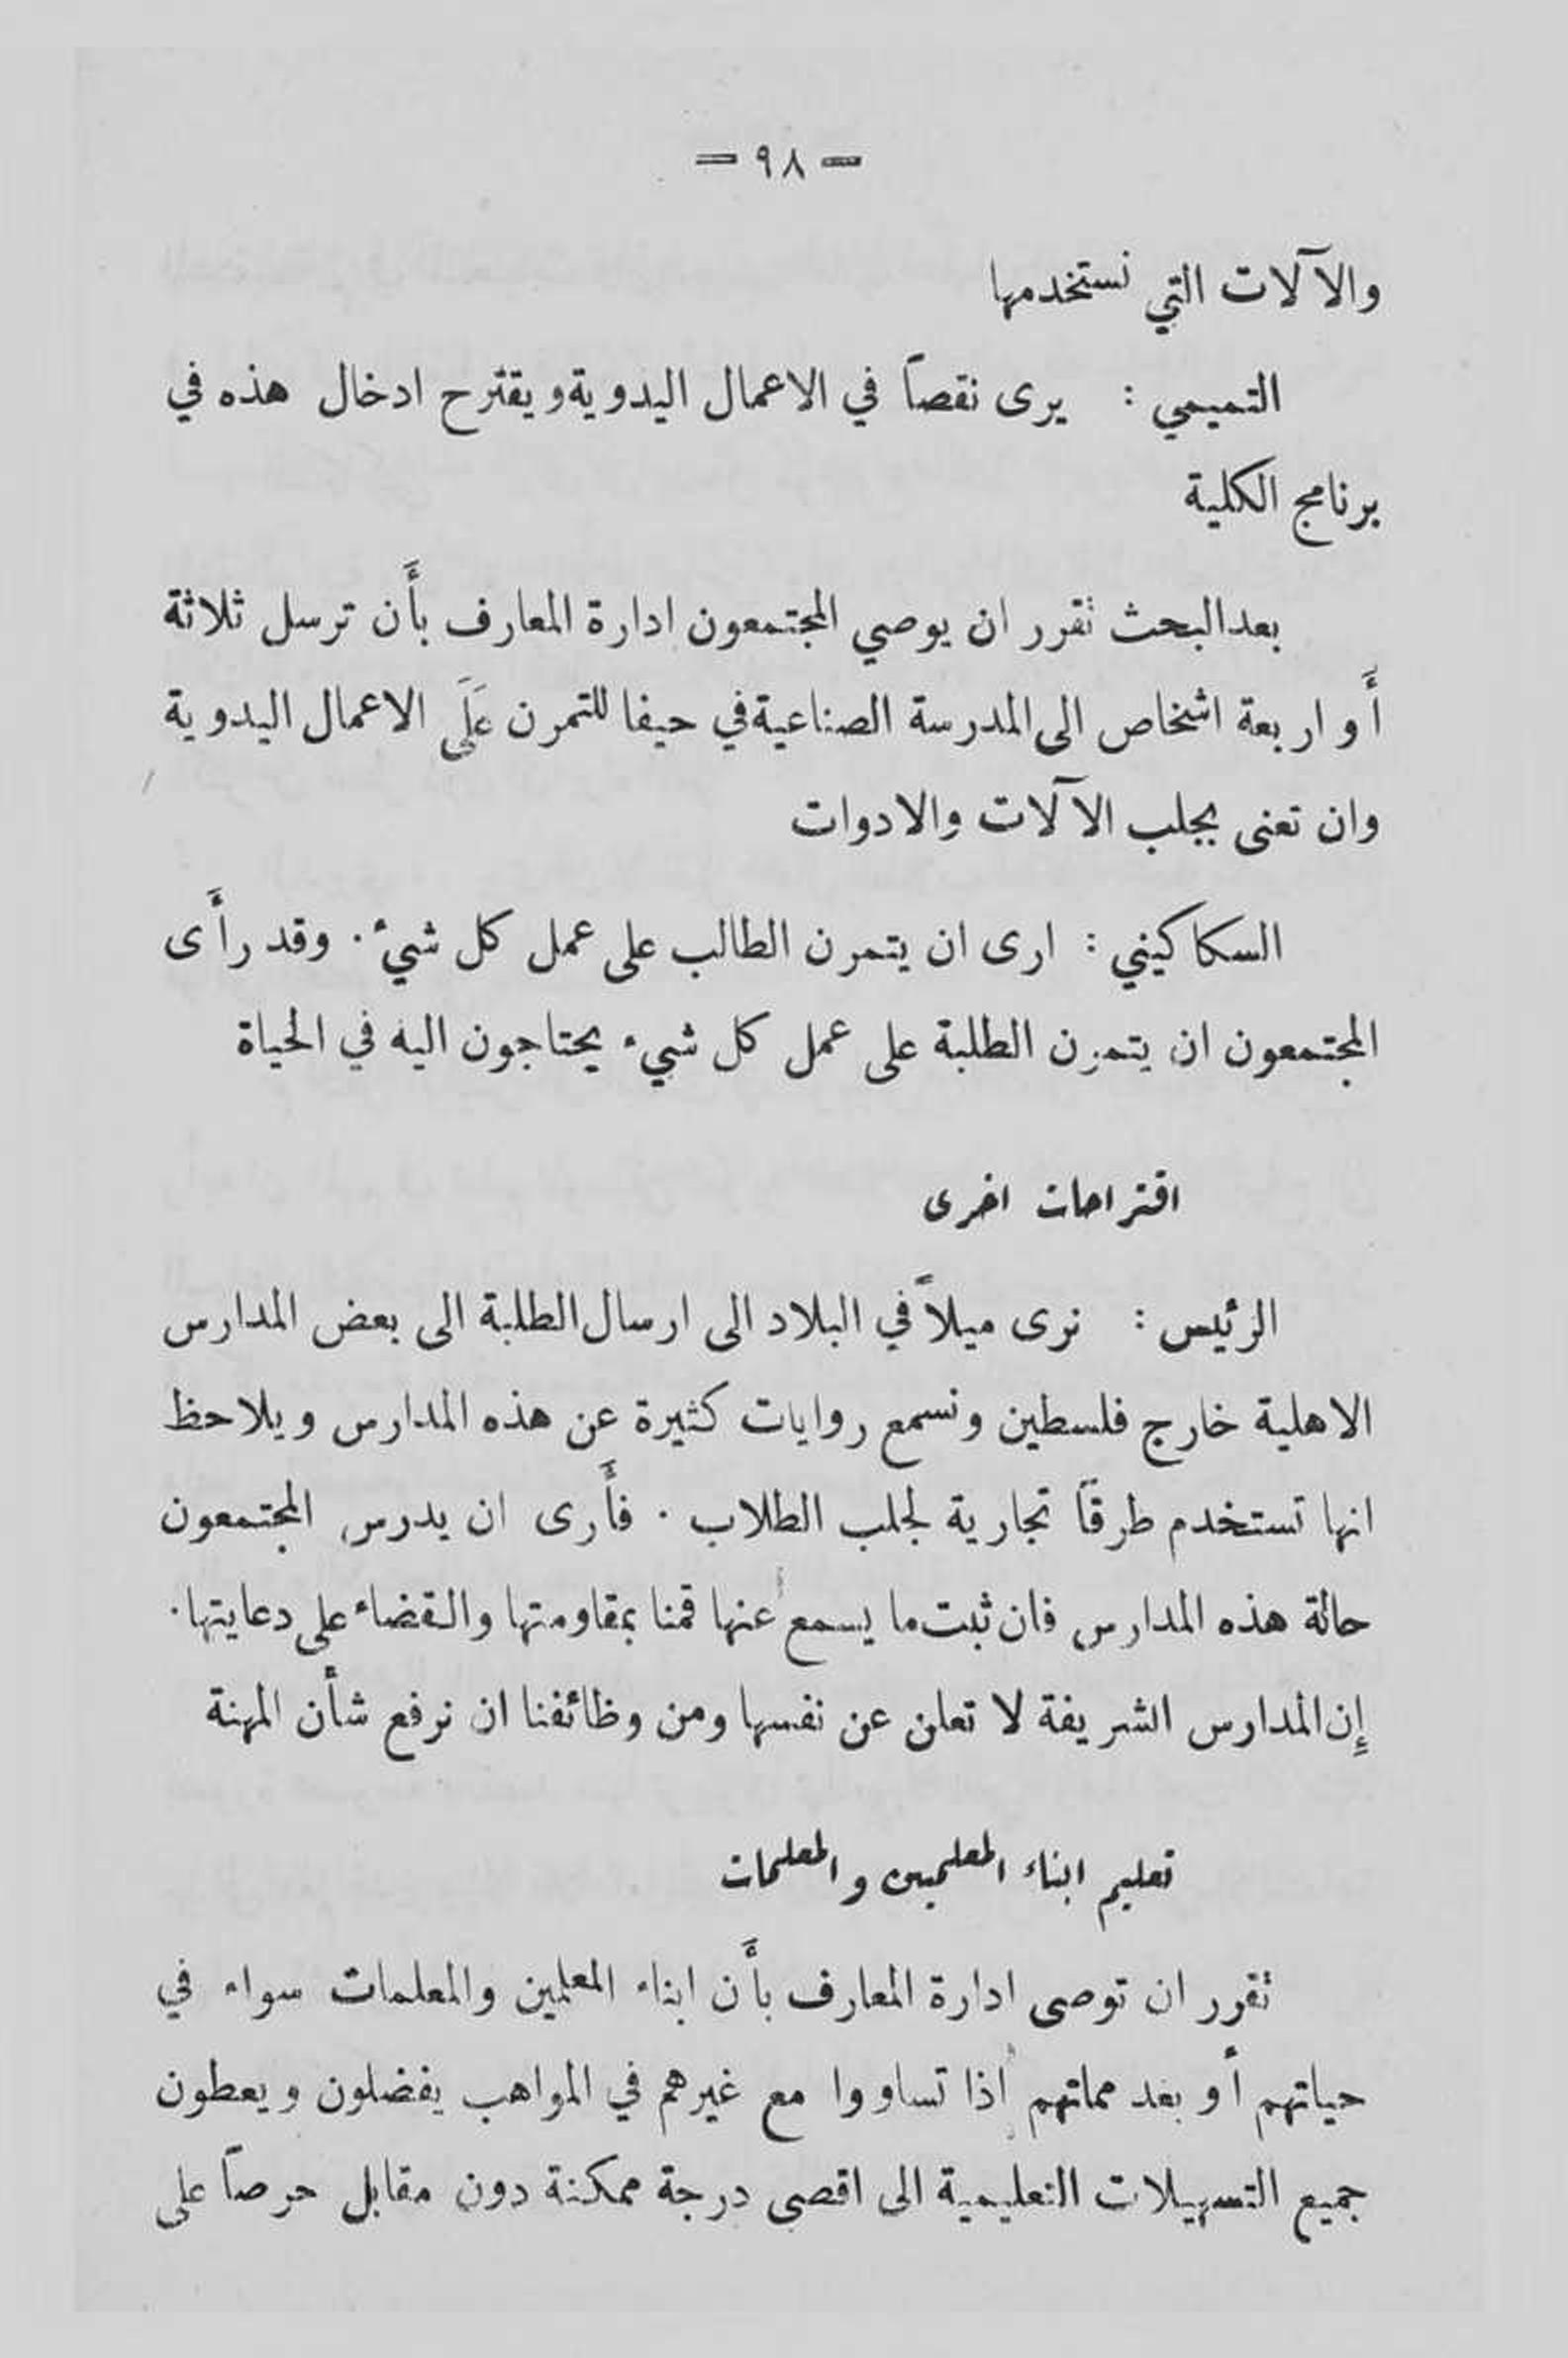 = ٩٨ =
والآلات التي نستخدمها
التميمي : يرى نقصاً في الاعمال اليدوية ويقترح ادخال هذه في
برنامج الكلية
بعد البحث تقرر ان يوصي المجتمعون ادارة المعارف بأَن ترسل ثلاثة
أَو اربعة اشخاص الى المدرسة الصناعية في حيفا للتمرن عَلَى الاعمال اليدوية
وان تعنى بجلب الآلات والادوات
السكاكيني : ارى ان يتمرن الطالب على عمل كل شيء . وقد رأَى
المجتمعون ان يتمرن الطلبة على عمل كل شيء يحتاجون اليه في الحياة
اقتراحات اخرى
الرئيس : نرى ميلاً في البلاد الى ارسال الطلبة الى بعض المدارس
الاهلية خارج فلسطين ونسمع روايات كثيرة عن هذه المدارس ويلاحظ
انها تستخدم طرقاً تجارية لجلب الطلاب . فأَرى ان يدرس المجتمعون
حالة هذه المدارس فان ثبت ما يسمع عنها قمنا بمقاومتها والقضاء على دعايتها .
إِن المدارس الشريفة لا تعلن عن نفسها ومن وظائفنا ان نرفع شأن المهنة
تعليم ابناء المعلمين والمعلمات
تقرر ان توصى ادارة المعارف بأَن ابناء المعلمين والمعلمات سواء في
حياتهم أو بعد مماتهم اذا تساووا مع غيرهم في المواهب يفضلون ويعطون
جميع التسهيلات التعليمية الى اقصى درجة ممكنة دون مقابل حرصاً على